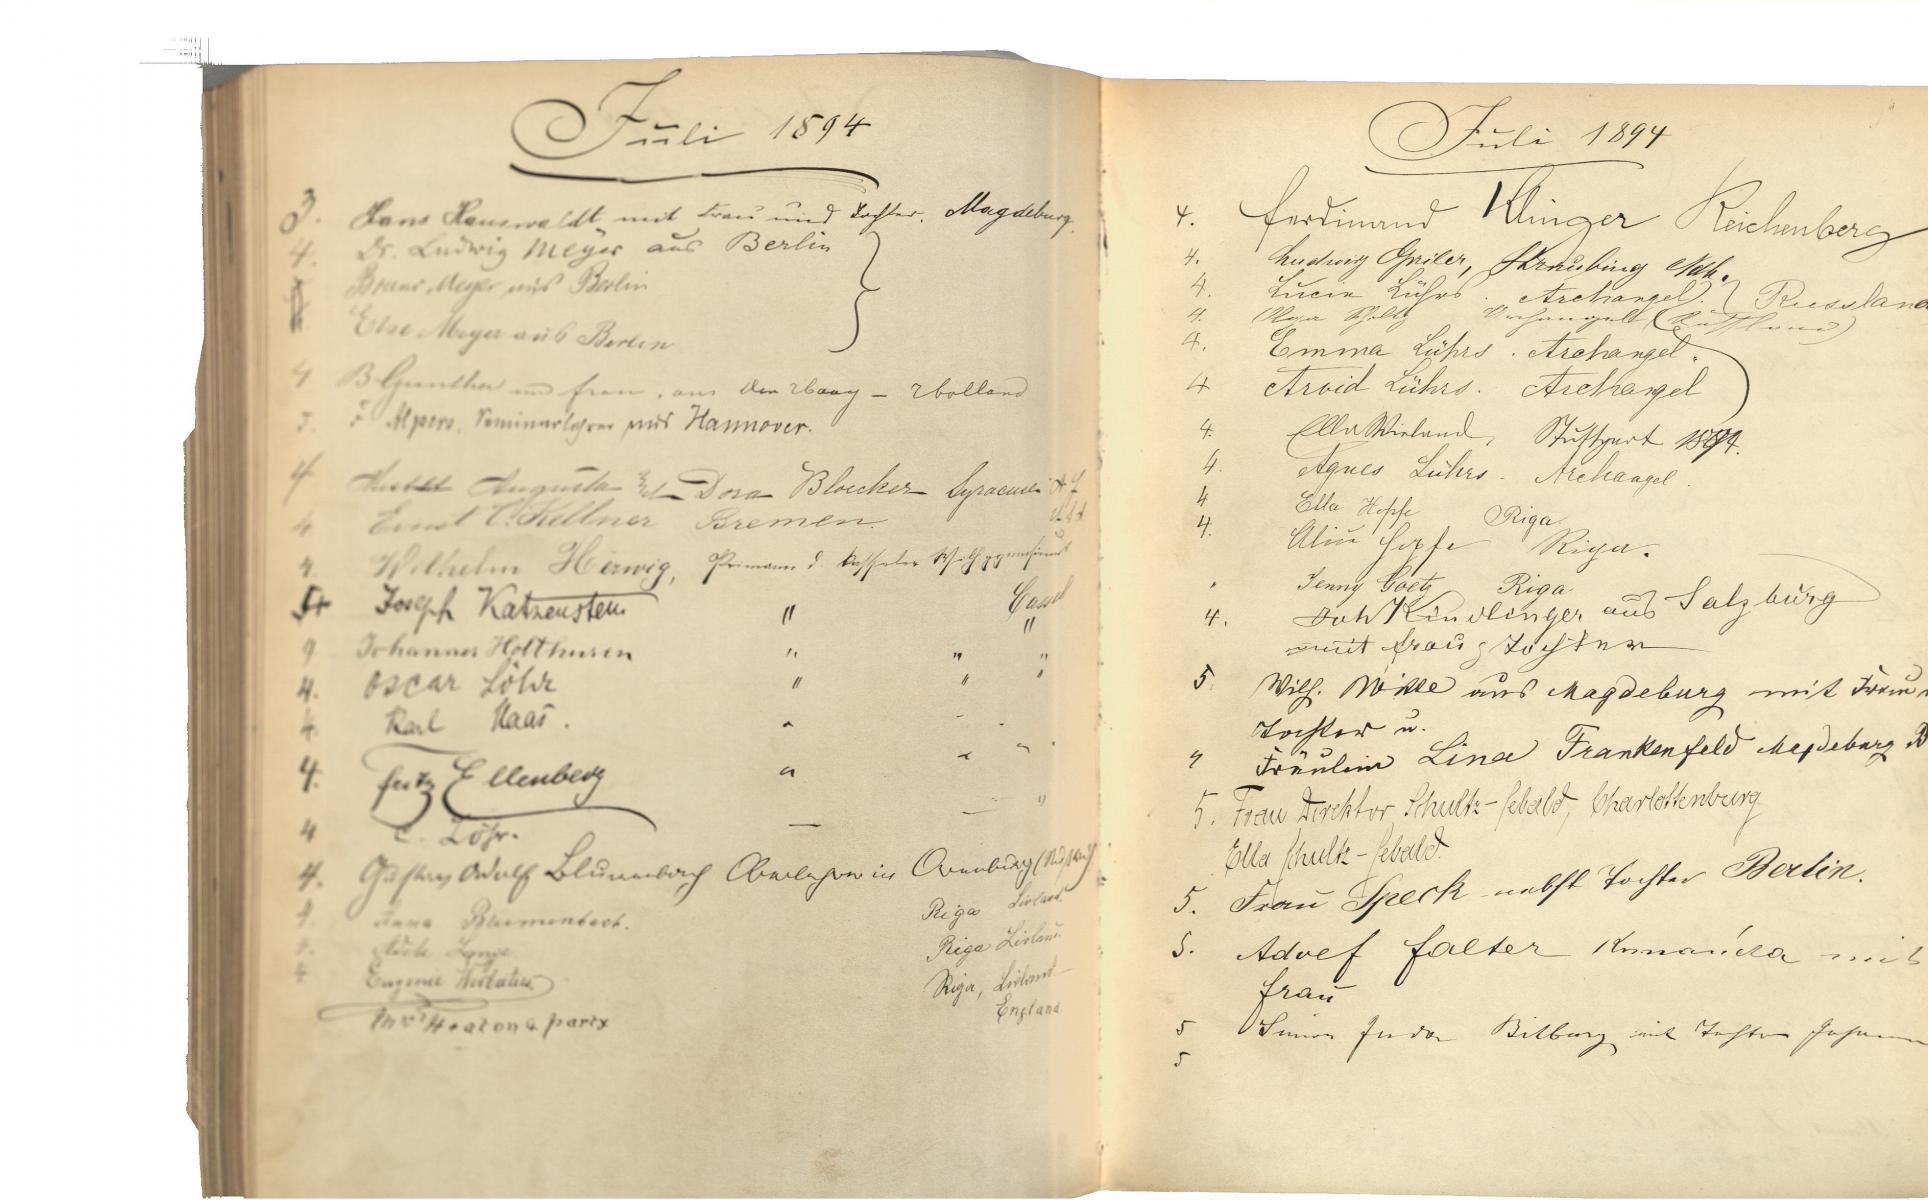 Juli 1894
3. Hans Hauswaldt mit Frau und Tochter. Magdeburg.
4. Dr. Ludwig Meyer aus Berlin
Bruno Meyer aus Berlin
Else Meyer aus Berlin
4 B Gunther und frau, aus den Haag - Holland
F. Alpers, Seminarlehrer aus Hannover.
4 Augusta Dora Bloecker Syracuse N Y
4 Ernst C. Kellner Bremen. U.S.A.
4. Wilhelm Herwig, Primaner d. Casseler
Joseph Katzenstein " Cassel
9 Johannes Holthusen " " "
4. Oscar Löhr " " "
4. Karl Haas.
4. Fritz Ellenberg "
4 C. Löhr.
4. Gustav Adolf Blumenbach Oberlehrer in Orenburg
4. Anna Blumenbach. Riga Livland.
4. Lange Riga Livland
4 Eugenie Riga, Livland
Mrs Heaton & party England
Juli 1894
4. Ferdinand Klinger Reichenberg
4. Ludwig Straubing Ndb.
4. Lucie Lührs. Archangel. Russland
4. Olga Archangelsk (Russland)
4. Emma Lührs. Archangel.
4 Arvid Lührs. Archangel
4. Ella Wieland, Stuttgart 1894.
4. Agnes Lührs. Archangel.
4 Ella Hopfe Riga
4. Alice Hopfe Riga.
" Jenny Goetz Riga
4. Joh Kindlinger aus Salzburg
mit frau & Tochter
5. Wilh. aus Magdeburg mit Frau
Tochter u.
4 Fräulein Lina Frankenfeld Magdeburg B
5. Frau Direktor Schultz-Sebald, Charlottenburg
Ella Schultz-Sebald.
5. Frau Speck nebst Tochter Berlin.
5. Adolf Falter mit
Frau
5 Simon Juda Bitburg mit Tochter
5